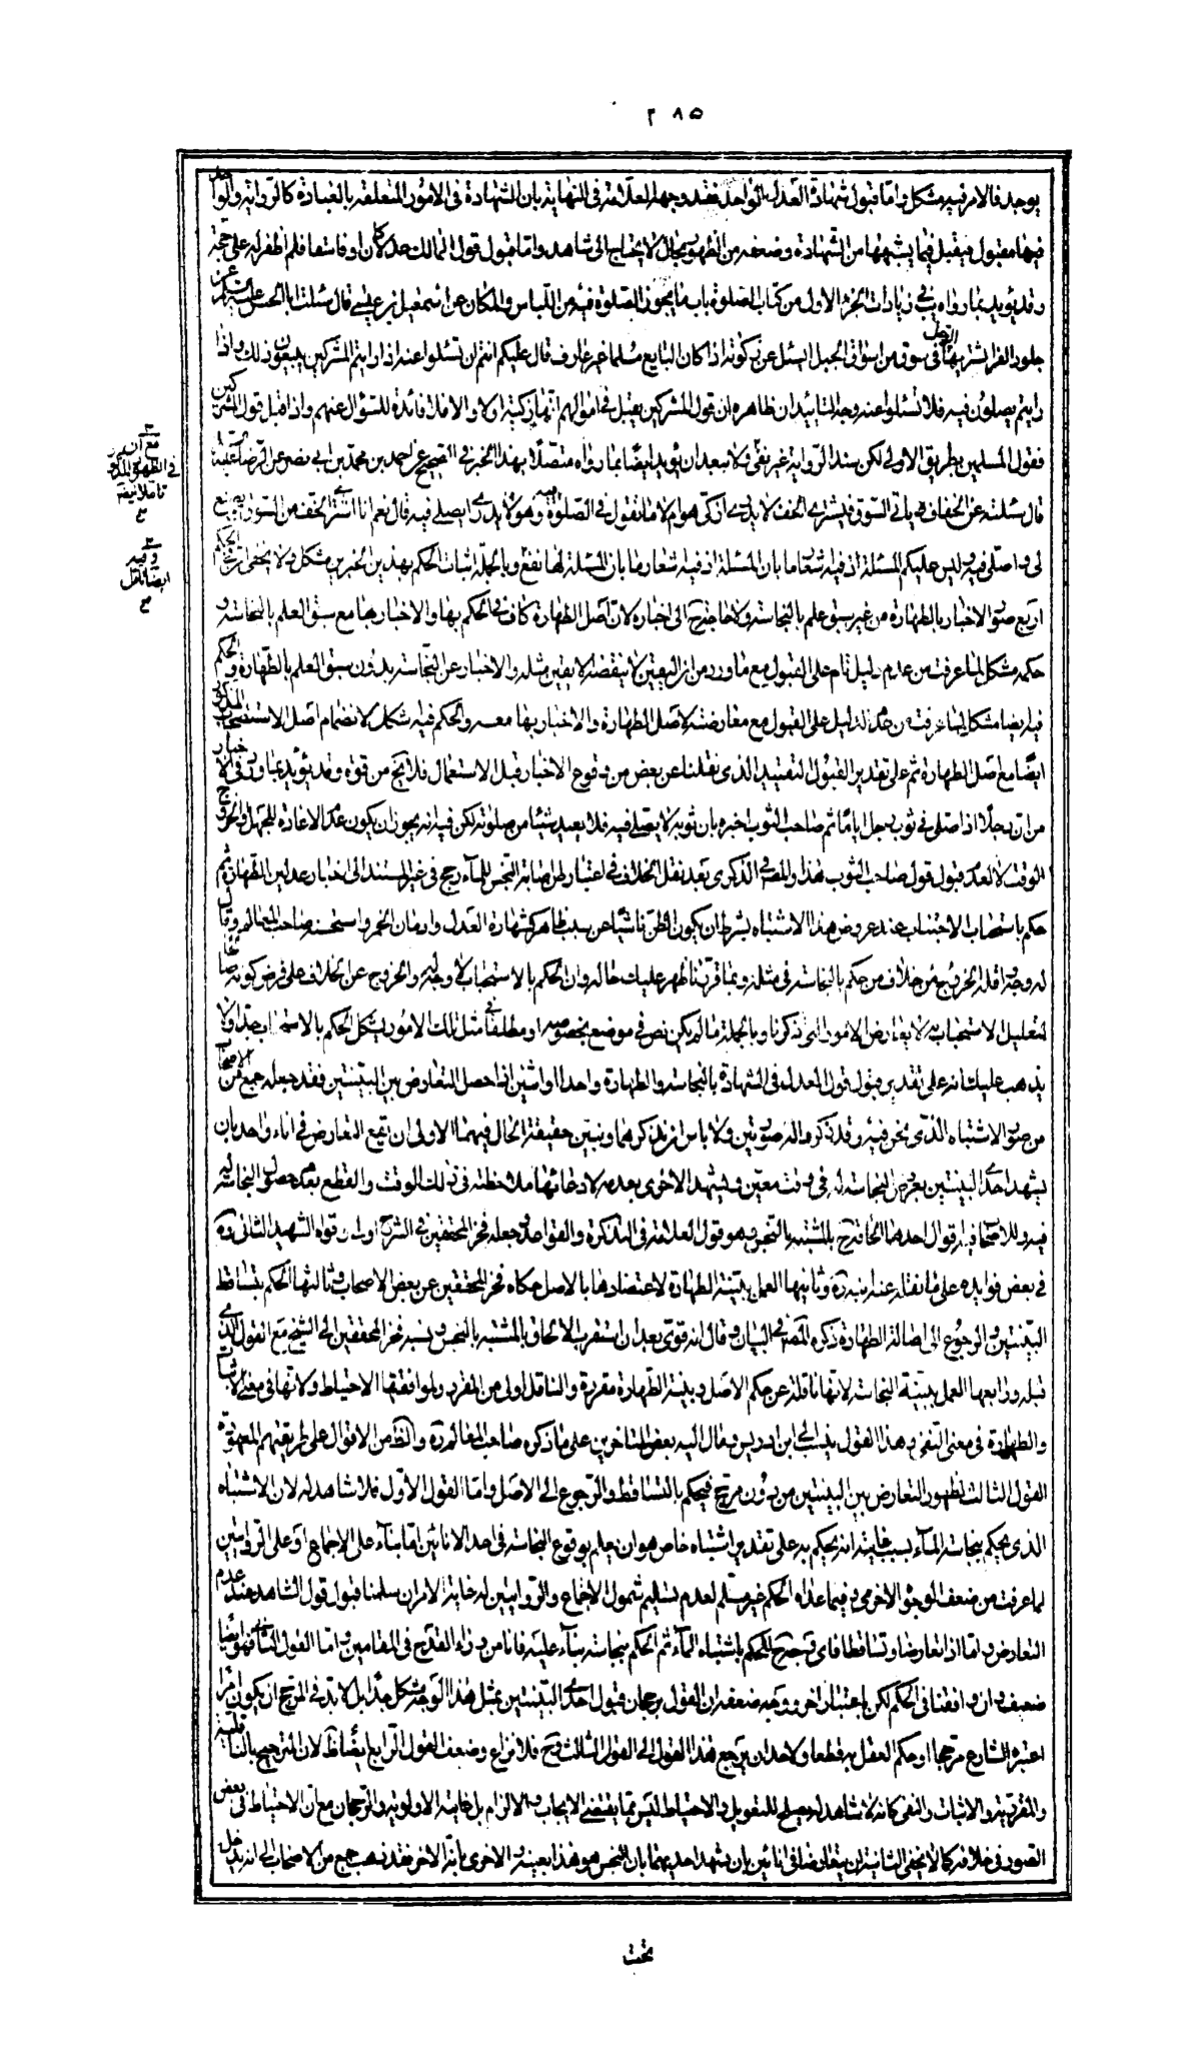 ٢٨٥
يوجد فالامر فيه مشكل واما قبول شهادة العدل الواحد فقد وجهه العلامة في النهاية بان الشهادة في الامور المتعلقة بالعبادة كالرواية والواحد
فيها مقبول فيقبل فيما يشبهها من الشهادة وضعفه من الظهور بحال لا يحتاج الى شاهد واما قبول قول المالك عدلا كان او فاسقا فلم اظفر له على حجة
وقد يؤيد بما رواه يب في زيادات الجزء الاول من كتاب الصلوة باب ما يجوز الصلوة فيه من اللباس والمكان عن اسمعيل بن عيسى قال سئلت ابا الحسن عليه السلام عن
جلود الفراء يشتريها الرجل في سوق من اسواق الجبل ايسئل عن ذكوته اذا كان البايع مسلما غير عارف قال عليكم انتم ان تسئلوا عنه اذا رايتم المشركين يبيعون ذلك واذا
رايتم يصلون فيه فلا تسئلوا عنه وجه التائيد ان ظاهره ان قول المشركين يقبل في اموالهم انها ذكية اولا والا فلا فائدة للسؤال عنهم واذا قبل قول المشركين
فقول المسلمين بطريق الاولى لكن سند الرواية غير نقي ولا يبعد ان يؤيد ايضا بما رواه متصلا بهذا الخبر في الصحيح عن احمد بن محمد بن ابي نصر عن الرضا عليه السلام
قال سئلته عن الخفاف ياتي السوق فيشتري الخف لا يدري اذكى هو ام لا ما تقول في الصلوة فيه وهو لا يدري ايصلي فيه قال نعم انا اشتري الخف من السوق ويصنع
لي واصلي فيه وليس عليكم المسئلة اذ فيه شعار ما بان المسئلة لها نفع وبالجملة اثبات الحكم بهذين الخبرين مشكل ولا يخفى الحكم
اربع صور الاخبار بالطهارة من غير سبق علم بالنجاسة ولا حاجة ح الى اخباره لان اصل الطهارة كاف في الحكم بها والاخبار بها مع سبق العلم بالنجاسة و
حكمه مشكل لما عرفت من عدم دليل تام على القبول مع ما ورد من ان اليقين لا ينقضه الا يقين مثله والاخبار عن النجاسة بدون سبق العلم بالطهارة والحكم
فيه ايضا مشكل لما عرفت من عدم الدليل على القبول مع معارضته لاصل الطهارة والاخبار بها معه والحكم فيه شكل لانضمام اصل الاستصحاب المذكور
ايضا مع اصل الطهارة ثم على تقدير القبول التقييد الذي نقلنا عن بعض من وقوع الاخبار قبل الاستعمال فلا يخ من قوة وقد يؤيد بما ورد في الاخبار
من ان رجلا اذا صلى في ثوب رجل اياما ثم صاحب الثوب اخبره بان ثوبه لا يصلى فيه فلا يعيد شيئا من صلوته لكن فيه انه يجوز ان يكون عدم الاعادة للجهل وخروج
الوقت لا لعدم قبول قول صاحب الثوب هذا والمص في الذكرى بعد نقل الخلاف في اعتبار ظن اصابة النجس للماء رجح في غير المستند الى اخبار عدلين الطهارة ثم
حكم باستحباب الاجتناب عند عروض هذا الاشتباه بشرط ان يكون الظن ناشئا عن سبب ظاهر كشهادة العدل وادمان الخمر واستحسنه صاحب المعالم وقال
له وجه اقله الخروج من خلاف من حكم بالنجاسة في مثله وبما قررنا ظهر عليك حاله وان الحكم بالاستحباب لا وجه له والخروج عن الخلاف على فرض كونه صالحا
لتعليل الاستحباب به لا يعارض الامور التي ذكرنا وبالجملة ما لم يكن نص في موضع بخصوصه او مطلقا في مثل تلك الامور يشكل الحكم بالاستحباب جدا ولا
يذهب عليك انه على تقدير قبول قول العدل في الشهادة بالنجاسة والطهارة واحدا او اثنين اذا حصل التعارض بين البينتين فقد جعله جمع من الاصحاب
من صور الاشتباه الذي نحن فيه وقد ذكروا له صورتين ولا باس ان نذكرهما ونبين حقيقة الحال فيهما الاولى ان يقع التعارض في اناء واحد بان
يشهد احدى البينتين بعروض النجاسة له في وقت معين ويشهد الاخرى بعدمه لادعائها ملاحظته في ذلك الوقت والقطع بعدم حصول النجاسة له
فيه وللاصحاب فيه اقوال احدها الحاقه ح بالمشتبه بالنجس وهو قول العلامة في التذكرة والقواعد وجعله فخر المحققين في الشرح اولى وقواه الشهيد الثاني ره
في بعض فوايده على ما نقله عنه ابنه ره وثانيها العمل ببينة الطهارة لاعتضادها بالاصل حكاه فخر المحققين عن بعض الاصحاب وثالثها الحكم بتساقط
البينتين والرجوع الى اصالة الطهارة ذكره المص في البيان وقال انه قوي بعد ان استقرب الالحاق بالمشتبه بالنجس ونسبه فخر المحققين الى الشيخ مع القول الذي
قبله ورابعها العمل ببينة النجاسة لانها ناقلة عن حكم الاصل وبينة الطهارة مقررة والناقل اولى من المقرر ولموافقتها الاحتياط ولانها في معنى الاثبات
والطهارة في معنى النفي وهذا القول ينسب الى ابن ادريس ومال اليه بعض المتاخرين على ما ذكره صاحب المعالم ره والظ من الاقوال على طريقتهم المعهودة
القول الثالث لظهور التعارض بين البينتين من دون مرجح فيحكم بالتساقط والرجوع الى الاصل واما القول الاول فلا شاهد له لان الاشتباه
الذي يحكم بنجاسة الماء بسببه غايته انه يحكم به على تقدير اشتباه خاص هو ان يعلم بوقوع النجاسة في احد الانائين اما بناء على الاجماع او على الروايتين
لما عرفت من ضعف الوجوه الاخرى وفيما عداه الحكم غير مسلم لعدم تسليم شمول الاجماع والروايتين له غاية الامر ان سلمنا قبول قول الشاهد عند عدم
التعارض واما اذا تعارضا وتساقطا فاي وجه ح للحكم باشتباه الماء ثم الحكم بنجاسته بناء عليه فانا من وراء القدح في المقامين واما القول الثاني فهو ايضا
ضعيف وان وافقنا في الحكم لكن باعتبار اخر ووجه ضعفه ان القول برجحان قبول احدى البينتين بمثل هذا الوجه مشكل جدا بل لا بد في المرجح ان يكون امرا
اعتبره الشارع مرجحا او حكم العقل به قطعا ولا حد ان يرجع هذا القول الى القول الثالث وح فلا نزاع وضعف القول الرابع ايضا ظ لان الترجيح بالناقلية
والمقررية والاثبات والنفي كانه لا شاهد له يصلح للتعويل والاحتياط ليس مما يقتضي الايجاب والالزام بل غايته الاولوية والرجحان مع ان الاحتياط في بعض
الصور في خلافه كما لا يخفى الثانية ان يتعارضا في انائين بان يشهد احديهما بان النجس هو هذا بعينه والاخرى بانه الاخر فقد ذهب جمع من الاصحاب الى انه يدخل
مع ان
في الظهور المذكور
تاملا فيه
م
وفيه
ايضا تامل
م
تحت